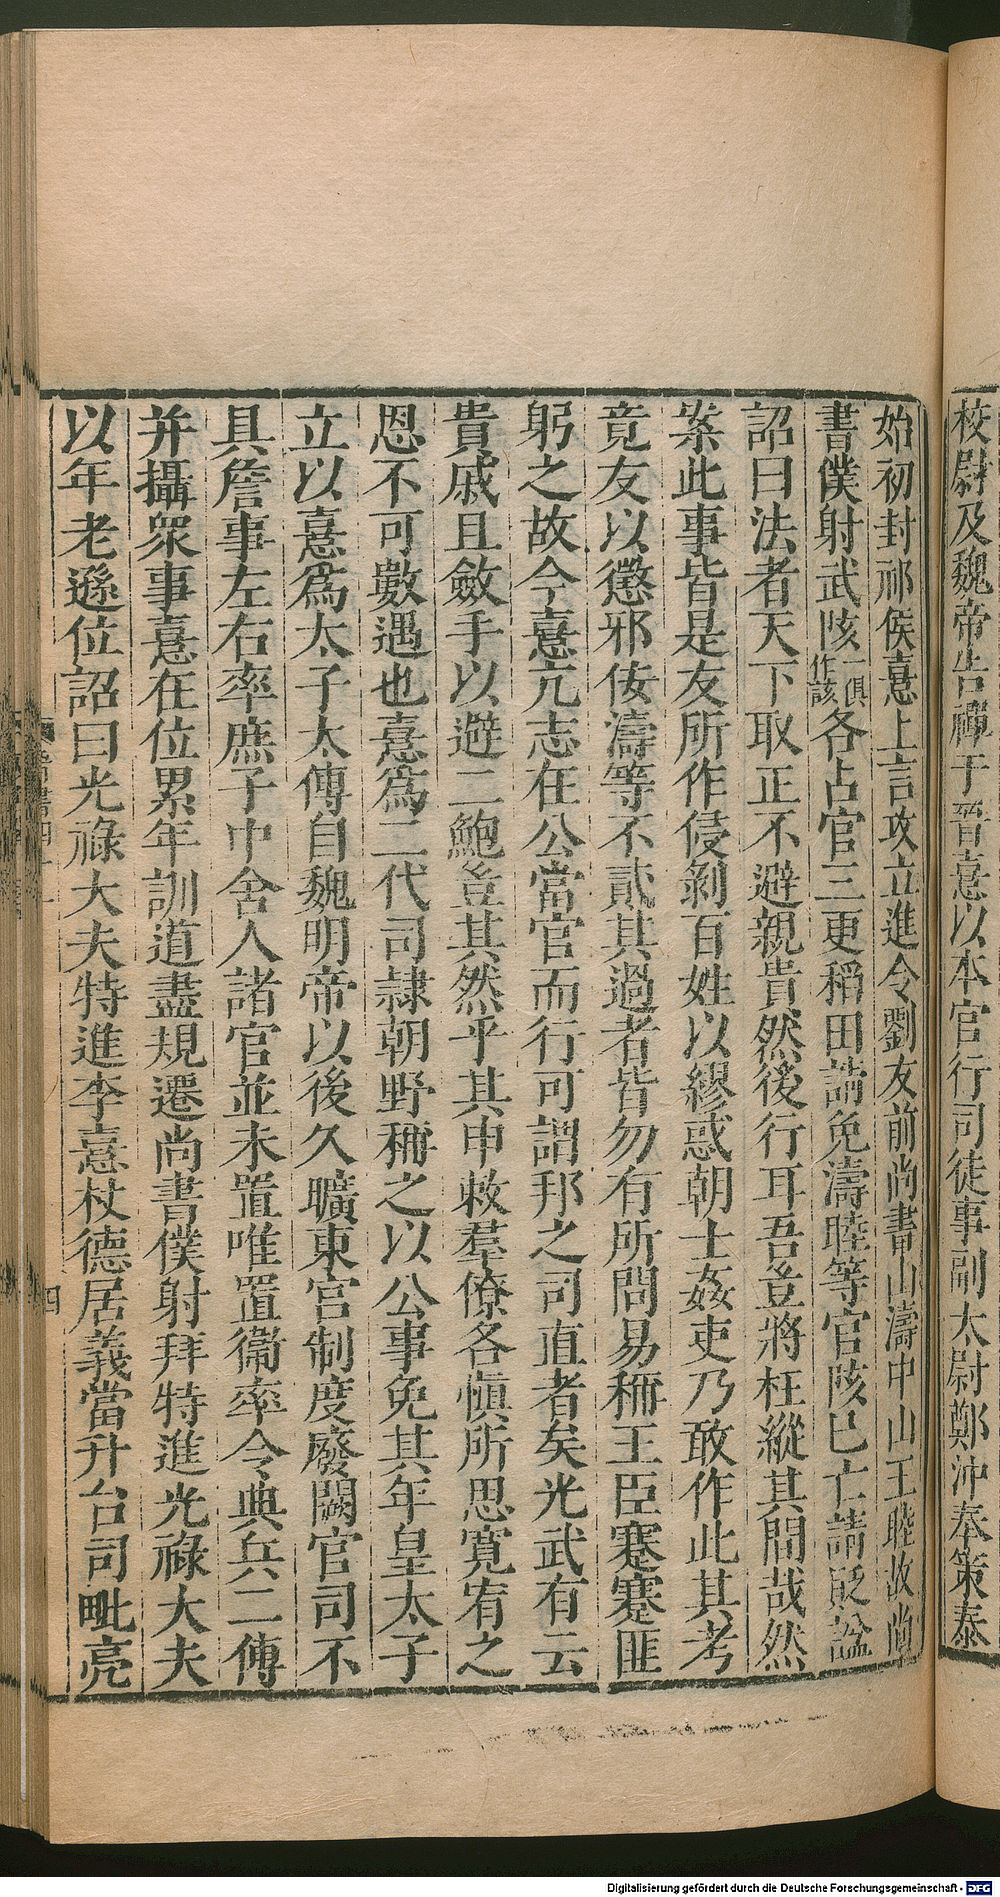 校尉及魏帝告禪于晉憙以本官行司徒事副太尉鄭沖奉策泰
始初封祁侯憙上言攻立進令劉友前尚書山濤中山王睦故尚
書僕射武陔一俱作該各占官三更稻田請免濤睦等官陔已亡請貶諡
詔曰法者天下取正不避親貴然後行耳吾豈將枉縱其間哉然
案此事皆是友所作侵剝百姓以繆惑朝士姦吏乃敢作此其考
竟友以懲邪佞濤等不貳其過者皆勿有所問易稱王臣蹇蹇匪
躬之故今憙亢志在公當官而行可謂邦之司直者矣光武有云
貴戚且斂手以避二鮑豈其然乎其申敕羣僚各慎所思寬宥之
恩不可數遇也憙爲二代司隷朝野稱之以公事免其年皇太子
立以憙爲太子太傅自魏明帝以後久曠東宮制度廢闕官司不
具詹事左右率庶子中舍人諸官並未置唯置衞率令典兵二傅
并攝衆事憙在位累年訓道盡規遷尚書僕射拜特進光祿大夫
以年老遜位詔曰光祿大夫特進李憙杖德居義當升台司毗亮
晉書四十一
四
Digitalisierung gefördert durch die Deutsche Forschungsgemeinschaft - DFG